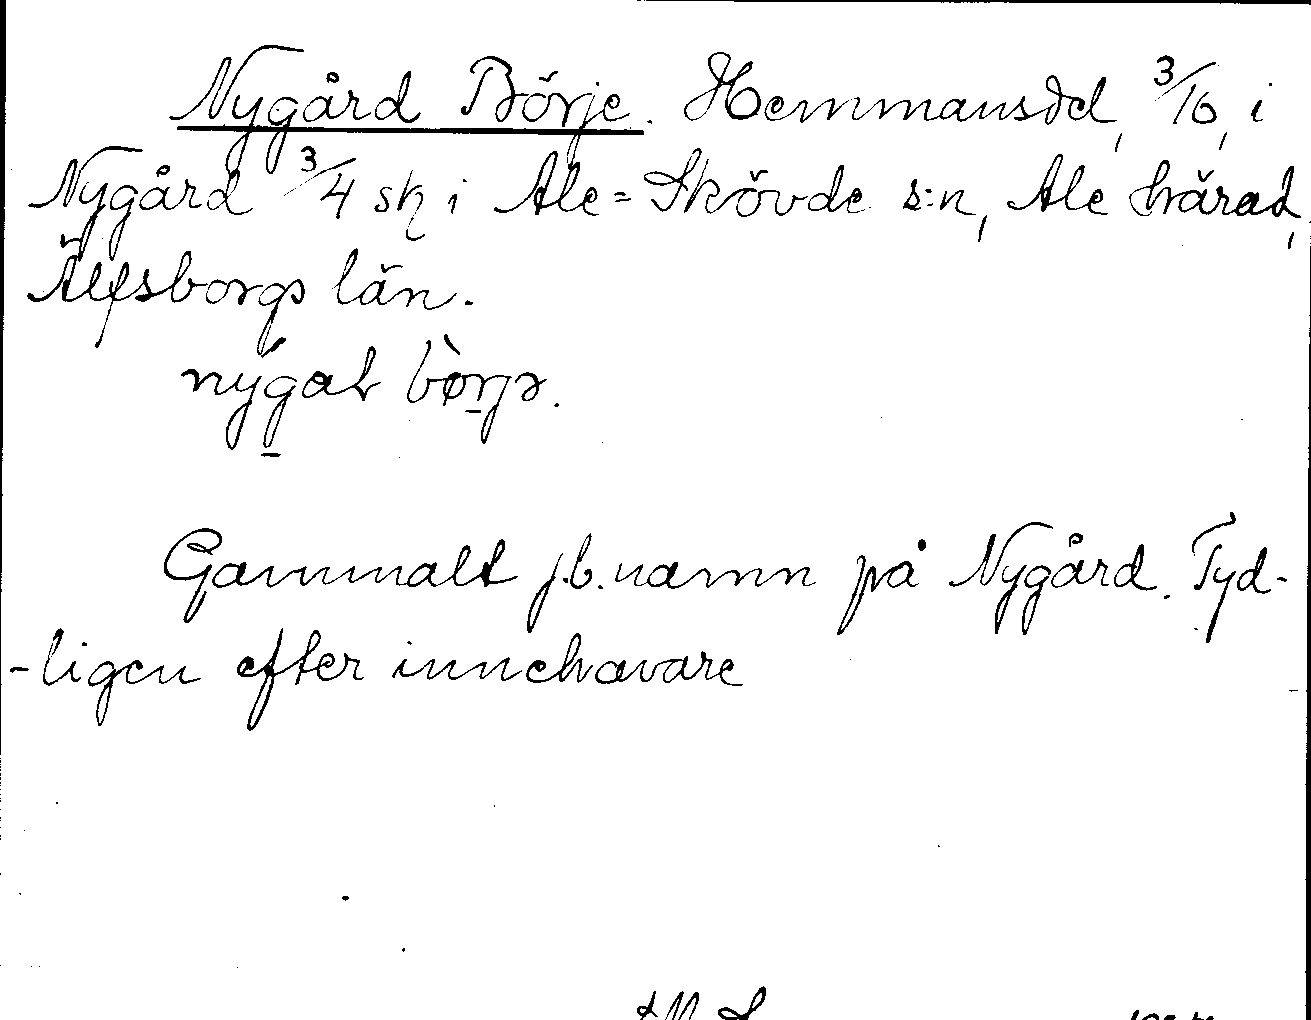 Nygård Börje. Hemmansdel, 3/16, i
Nygård 3/4 sk i Ale=Skövde s:n, Ale härad,
Älfsborgs län.
Gammalt j.b.namn på Nygård. Tyd-
-ligen efter innehavare